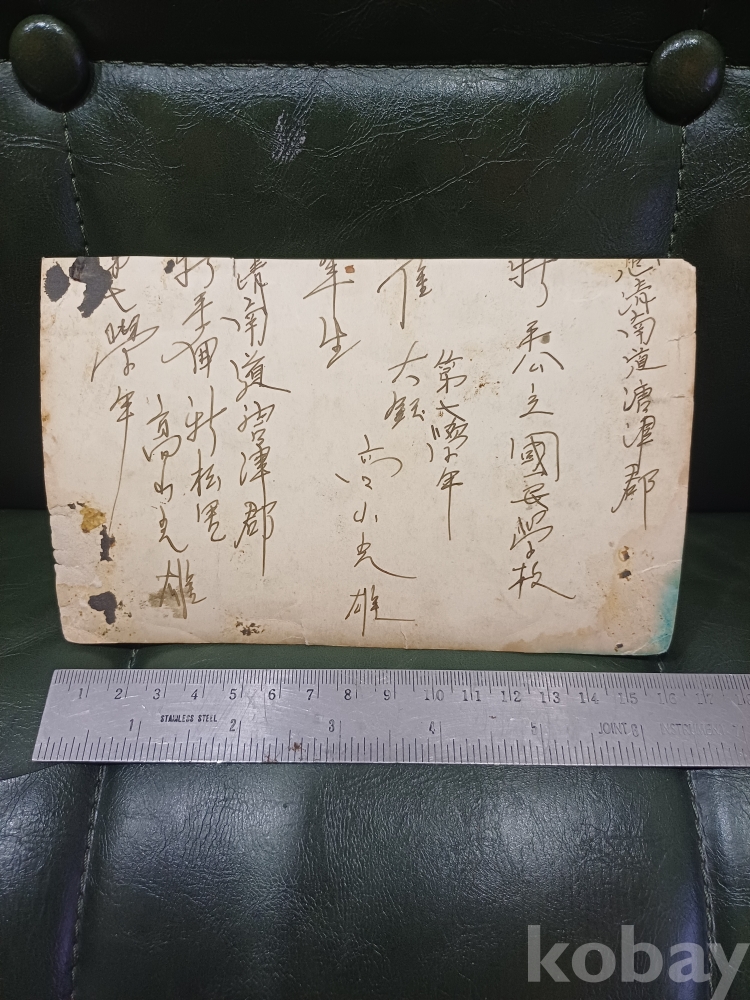 忠清南道唐津郡
新平公立國民學校
第七學年
大鎬
高山光雄
年生
淸南道唐津郡
新平面新松里
高山光雄
學年
1 2 3 4 5 6 7 8 9 10 11 12 13 14 15 16 17
STAINLESS STEEL
1 2 3 4 5
kobay